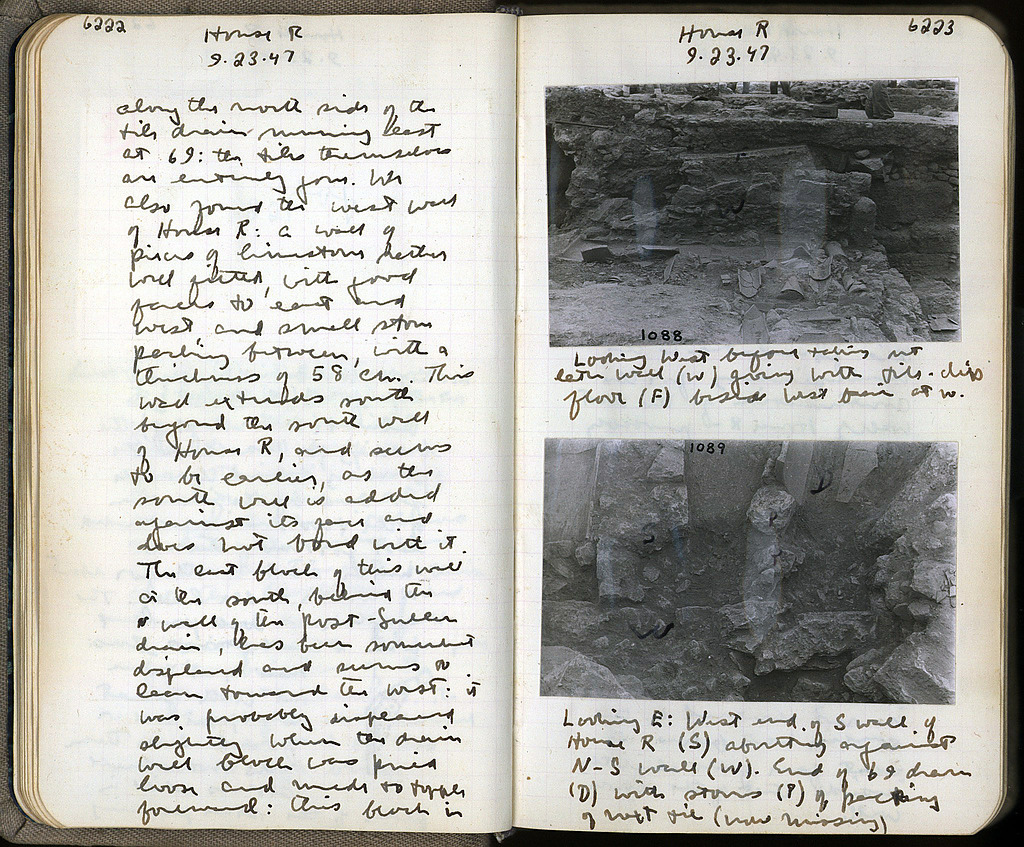 6222
House R
9.23.47
along the north side of the
tile drain running east
at 69: the tiles themselves
are entirely gone. We
also found the west wall
of House R: a wall of
pieces of limestone rather
well fitted, with good
faces to east and
west and small stone
packing between, with a
thickness of 58 cm. This
wall extends south
beyond the south wall
of House R, and seems
to be earlier, as the
south wall is added
against its face and
does not bond with it.
The east block of this wall
at the south, behind the
wall of the post-Sullan
drain, has been somewhat
displaced and seems to
lean toward the west: it
was probably displaced
slightly when the drain
wall block was pried
loose and made to topple
forward: this block is
6223
House R
9.23.47
1088
Looking West before taking out
later wall (W) going with tile-chip
floor (F) beside west basin at W.
1089
D
S
P
W
Looking E: West end of S wall of
House R (S) abutting against
N-S wall (W). End of 69 drain
(D) with stones (P) of packing
of next tile (now missing)